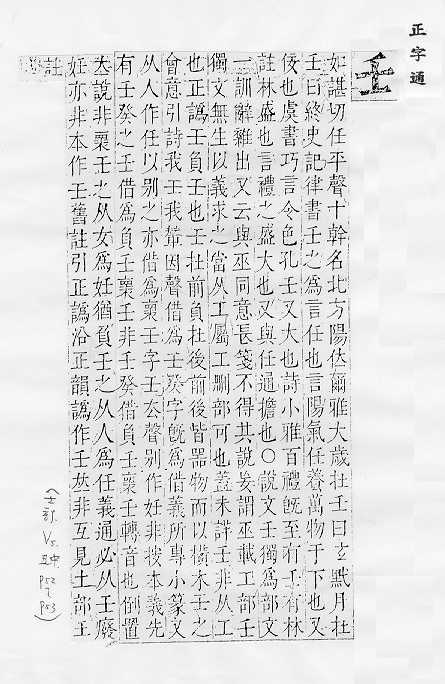 正字通
壬
如諶切任平聲十幹名北方陽位爾雅大歲在壬曰玄黓月在
壬曰終史記律書壬之爲言任也言陽氣任養萬物于下也又
佞也虞書巧言令色孔壬又大也詩小雅百禮旣至有壬有林
註林盛也言禮之盛大也又與任通擔也○說文壬獨爲部文
一訓辭雜出又云與巫同意長箋不得其說妄謂巫載工部壬
獨文無生以義求之當从工屬工刪部可也蓋未詳壬非从工
也正譌壬負壬也壬在前負在後前後皆器物而以橫木壬之
會意引詩我壬我輦因聲借爲壬癸字旣爲借義所專小篆文
从人作任以别之亦借爲稟壬字壬去聲别作妊非按本義先
有壬癸之壬借爲負壬稟壬非壬癸借負壬稟壬轉音也倒置
說非稟壬之从女爲妊猶負壬之从人爲任義通必从壬廢
妊亦非本作壬舊註引正譌沿正韻譌作壬𠀤非互見土部𡈼
註
(士部 Vs. P52~P53)